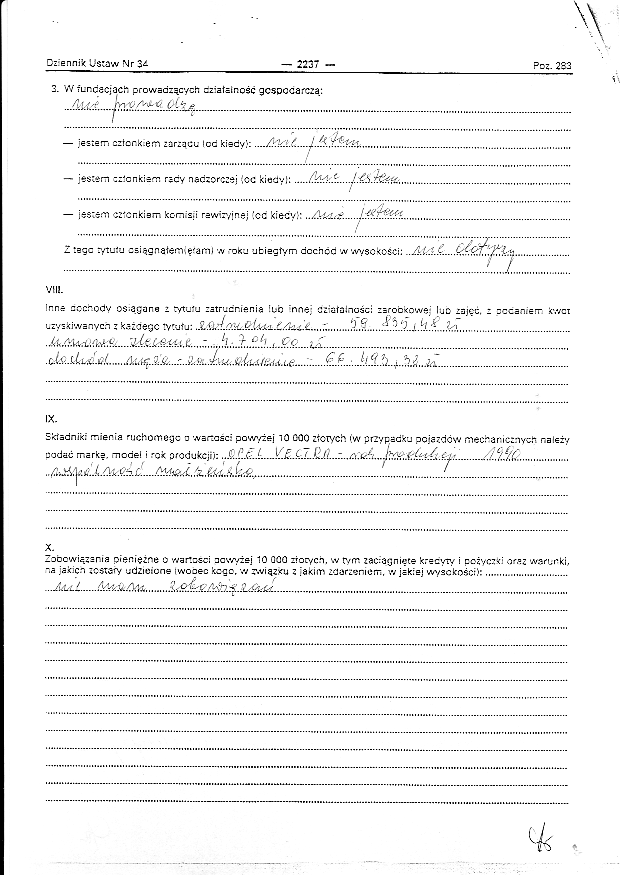 Dziennik Ustaw Nr 34 — 2237 — Poz. 283
3. W fundacjach prowadzących działalność gospodarczą:
nie prowadzę
— jestem członkiem zarządu (od kiedy): nie jestem
— jestem członkiem rady nadzorczej (od kiedy): nie jestem
— jestem członkiem komisji rewizyjnej (od kiedy): nie jestem
Z tego tytułu osiągnąłem(ęłam) w roku ubiegłym dochód w wysokości: nie dotyczy
VIII.
Inne dochody osiągane z tytułu zatrudnienia lub innej działalności zarobkowej lub zajęć, z podaniem kwot
uzyskiwanych z każdego tytułu: zatrudnienie - 59 835,48 zł
umowa zlecenie - 4.704,00 zł
dochód męża - zatrudnienie - 66.493,38 zł
IX.
Składniki mienia ruchomego o wartości powyżej 10 000 złotych (w przypadku pojazdów mechanicznych należy
podać markę, model i rok produkcji): OPEL VECTRA - rok produkcji 1990
wspólność małżeńska
X.
Zobowiązania pieniężne o wartości powyżej 10 000 złotych, w tym zaciągnięte kredyty i pożyczki oraz warunki,
na jakich zostały udzielone (wobec kogo, w związku z jakim zdarzeniem, w jakiej wysokości):
nie mam zobowiązań